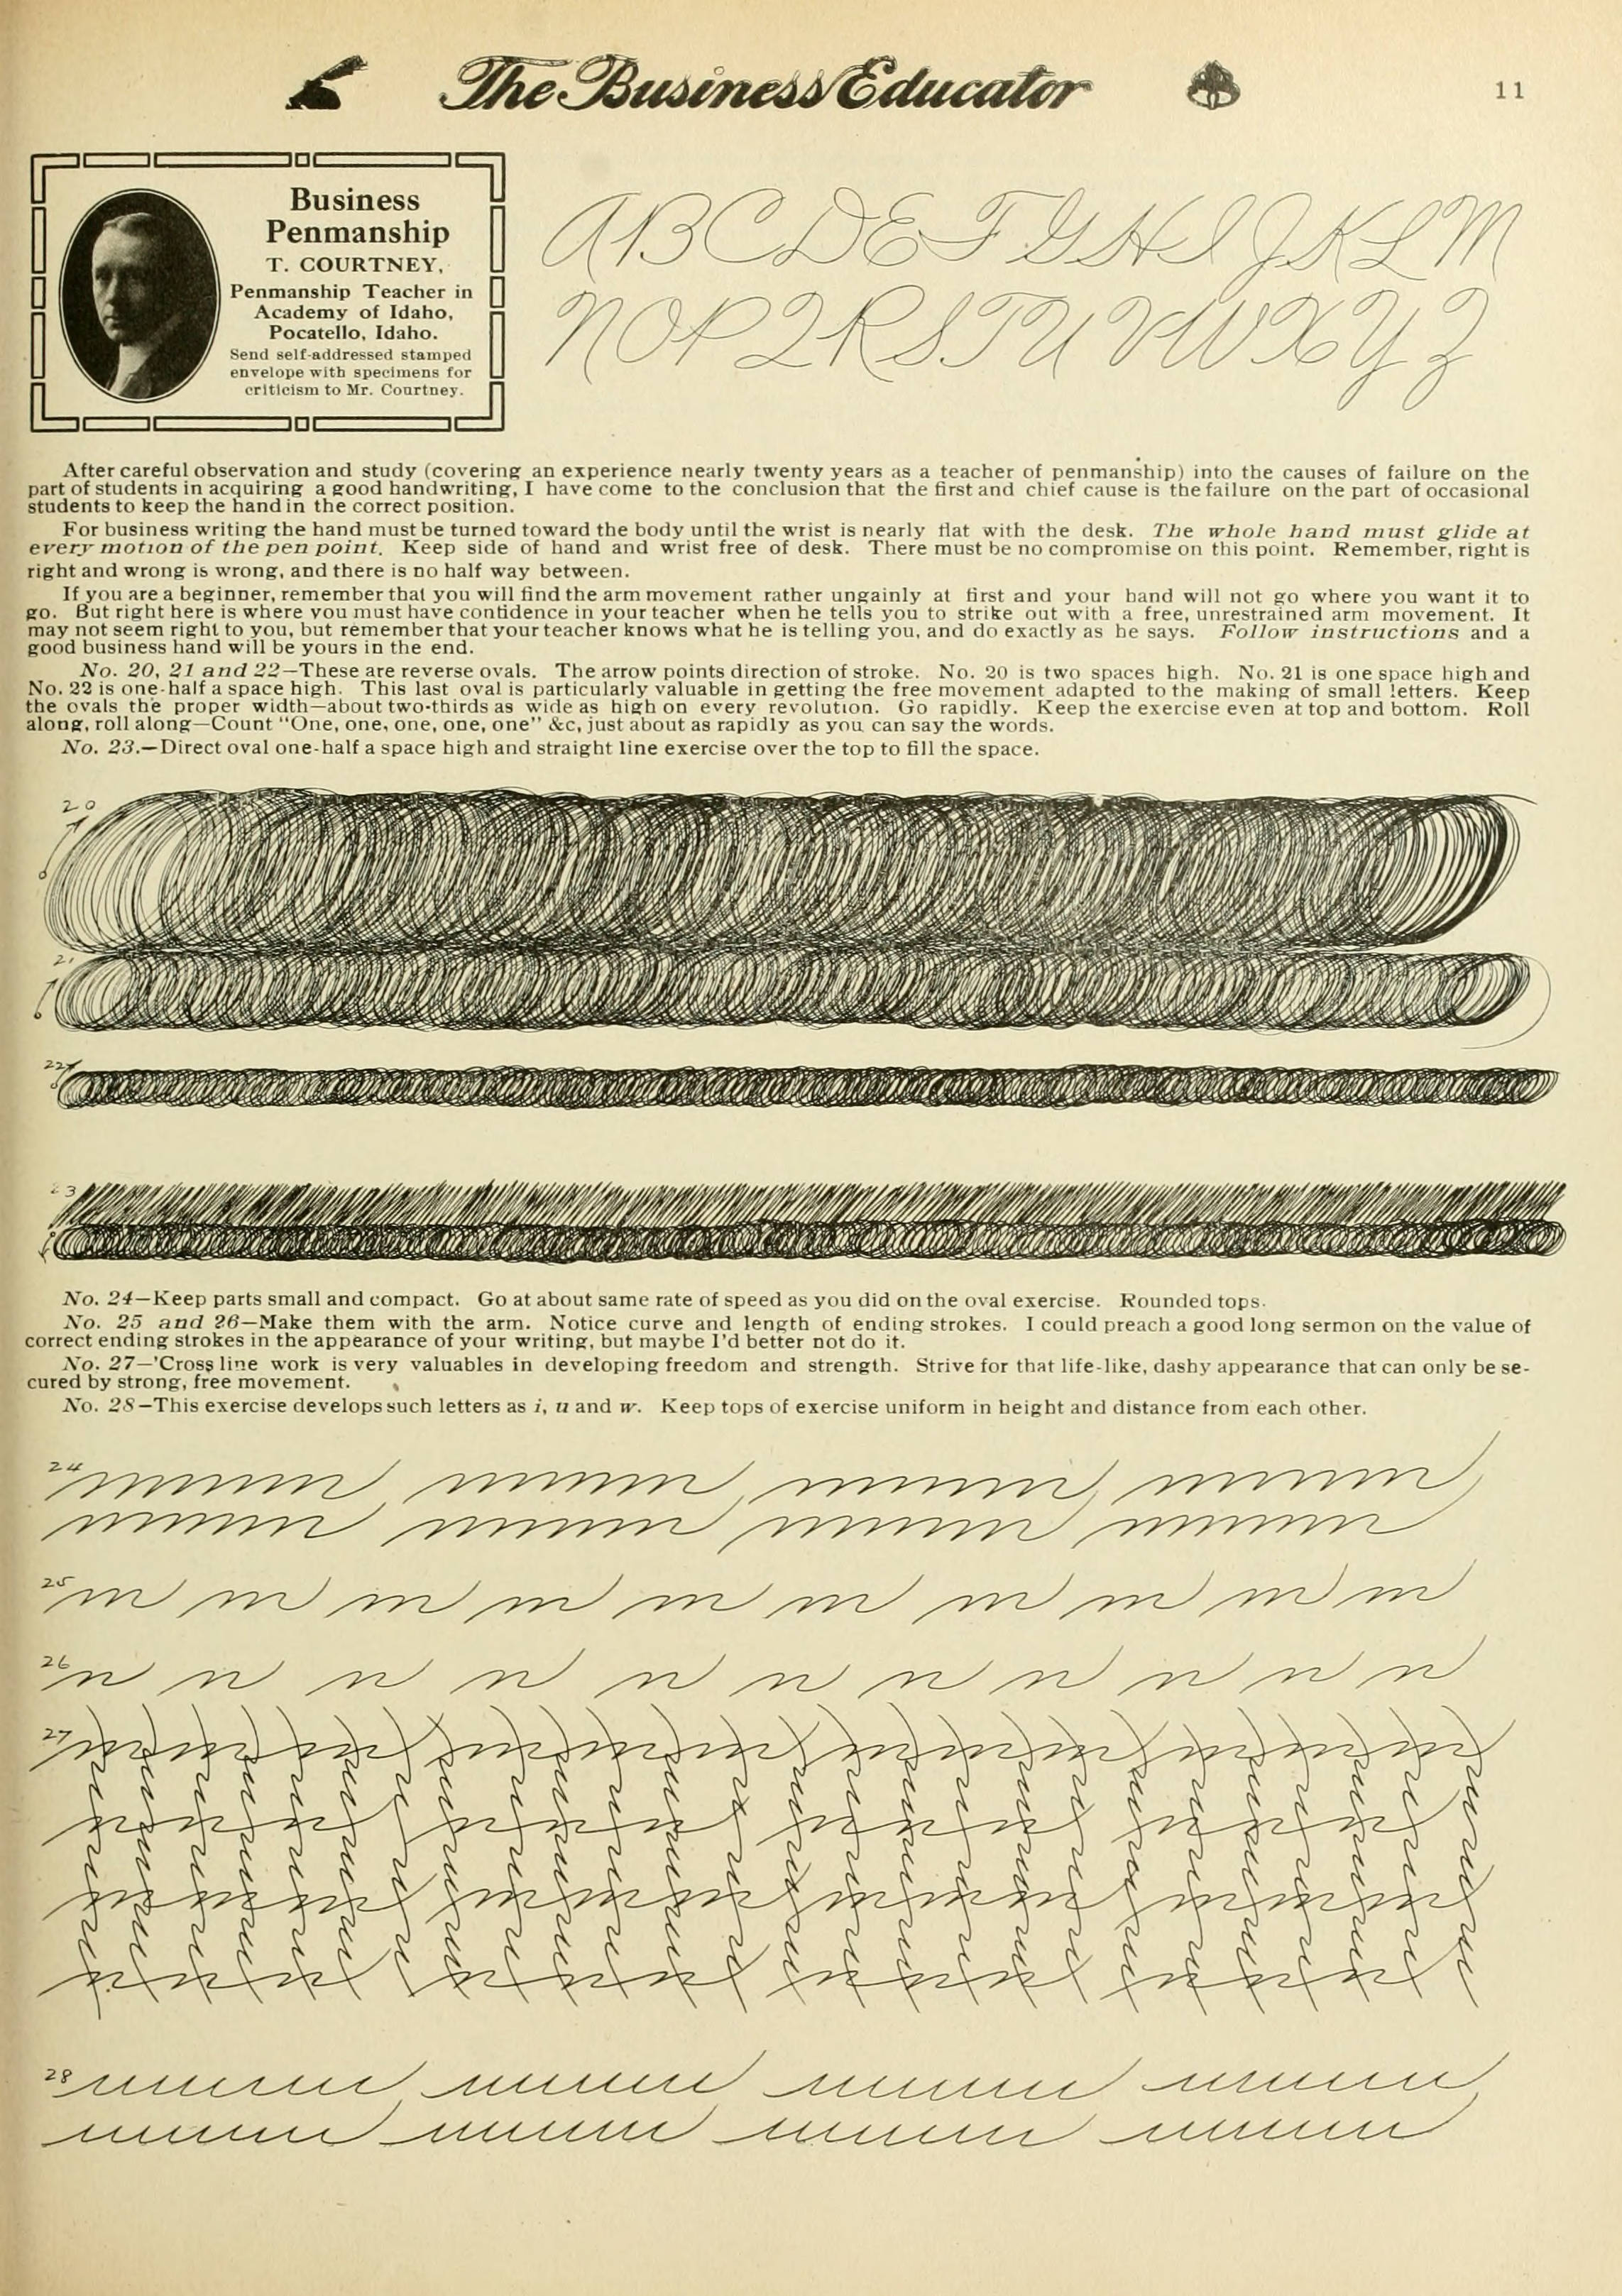 The Business Educator
11
Business
Penmanship
T. COURTNEY,
Penmanship Teacher in
Academy of Idaho,
Pocatello, Idaho.
Send self-addressed stamped
envelope with specimens for
criticism to Mr. Courtney.
A B C D E F G H I J K L M
N O P Q R S T U V W X Y Z
After careful observation and study (covering an experience nearly twenty years as a teacher of penmanship) into the causes of failure on the
part of students in acquiring a good handwriting, I have come to the conclusion that the first and chief cause is the failure on the part of occasional
students to keep the hand in the correct position.
For business writing the hand must be turned toward the body until the wrist is nearly flat with the desk. The whole hand must glide at
every motion of the pen point. Keep side of hand and wrist free of desk. There must be no compromise on this point. Remember, right is
right and wrong is wrong, and there is no half way between.
If you are a beginner, remember that you will find the arm movement rather ungainly at first and your hand will not go where you want it to
go. But right here is where you must have confidence in your teacher when he tells you to strike out with a free, unrestrained arm movement. It
may not seem right to you, but remember that your teacher knows what he is telling you, and do exactly as he says. Follow instructions and a
good business hand will be yours in the end.
No. 20, 21 and 22—These are reverse ovals. The arrow points direction of stroke. No. 20 is two spaces high. No. 21 is one space high and
No. 22 is one-half a space high. This last oval is particularly valuable in getting the free movement adapted to the making of small letters. Keep
the ovals the proper width—about two-thirds as wide as high on every revolution. Go rapidly. Keep the exercise even at top and bottom. Roll
along, roll along—Count "One, one, one, one, one" &c, just about as rapidly as you can say the words.
No. 23.—Direct oval one-half a space high and straight line exercise over the top to fill the space.
20
21
22
23
No. 24—Keep parts small and compact. Go at about same rate of speed as you did on the oval exercise. Rounded tops.
No. 25 and 26—Make them with the arm. Notice curve and length of ending strokes. I could preach a good long sermon on the value of
correct ending strokes in the appearance of your writing, but maybe I'd better not do it.
No. 27—'Cross line work is very valuables in developing freedom and strength. Strive for that life-like, dashy appearance that can only be se-
cured by strong, free movement.
No. 28—This exercise develops such letters as i, u and w. Keep tops of exercise uniform in height and distance from each other.
24
25 m m m m m m m m m m
26 n n n n n n n n n n n
27
28